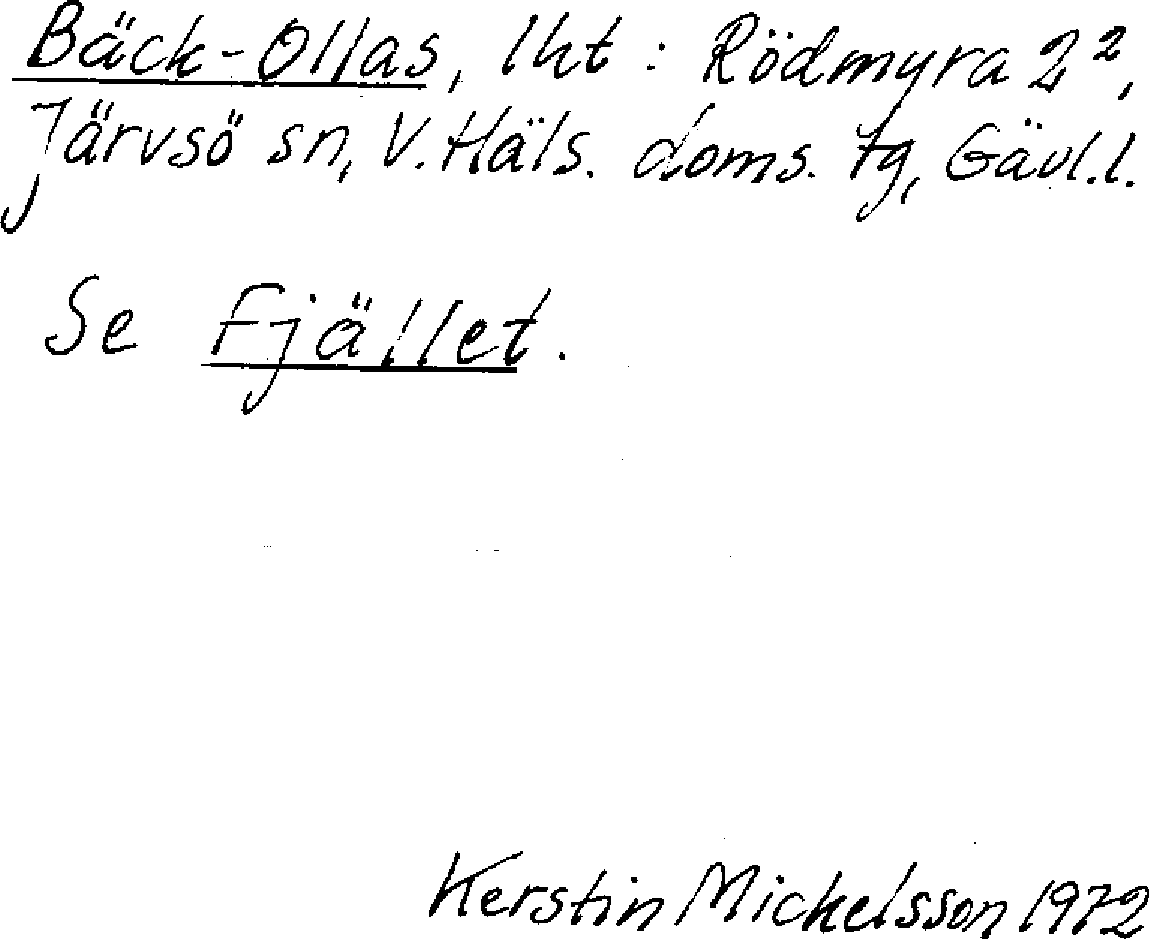 Bäck-Ollas, lht : Rödmyra 2²,
Järvsö sn, V. Häls. doms. tg, Gävl.l.
Se Fjället.
Kerstin Mickelsson 1972